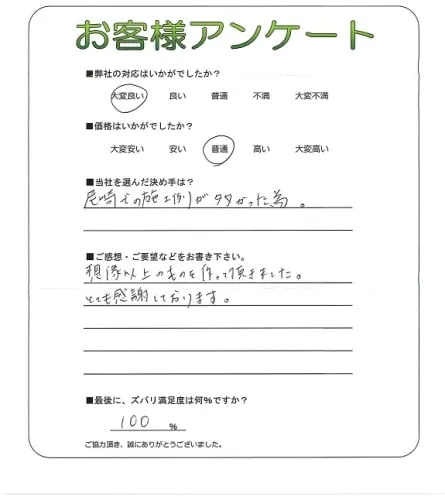 お客様アンケート
■弊社の対応はいかがでしたか?
大変良い 良い 普通 不満 大変不満
■価格はいかがでしたか?
大変安い 安い 普通 高い 大変高い
■当社を選んだ決め手は?
尼崎での施工例が多かった為。
■ご感想・ご要望などをお書き下さい。
想像以上のものを作って頂きました。
とても感謝しております。
■最後に、ズバリ満足度は何%ですか?
100 %
ご協力頂き、誠にありがとうございました。